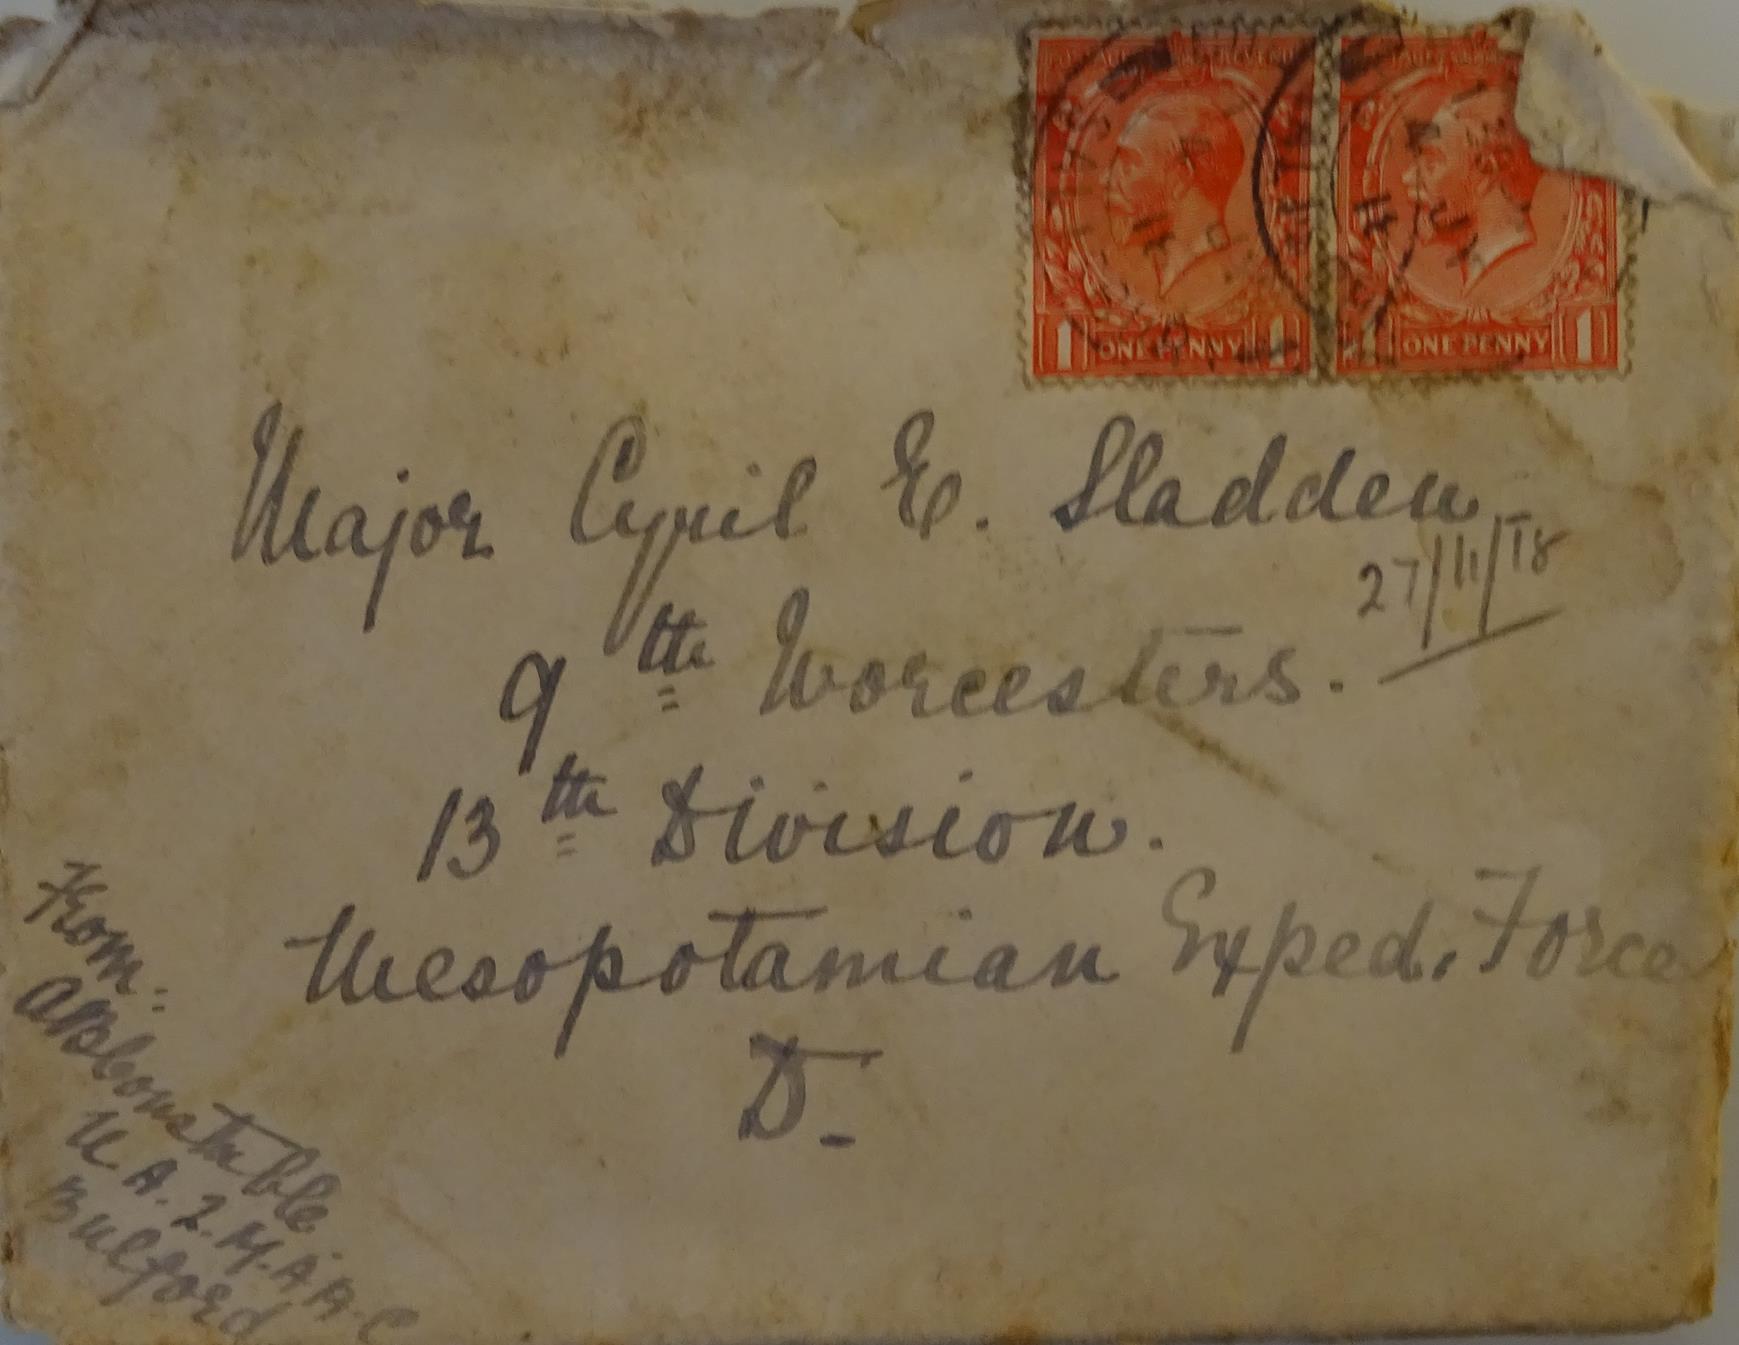 ONE PENNY
ONE PENNY
Major Cyril E. Sladden
27/11/18
9th Worcesters.
13th Division.
Mesopotamian Exped. Force
D.
From:
Constable
N.A.2.M.A.A.C
Bulford